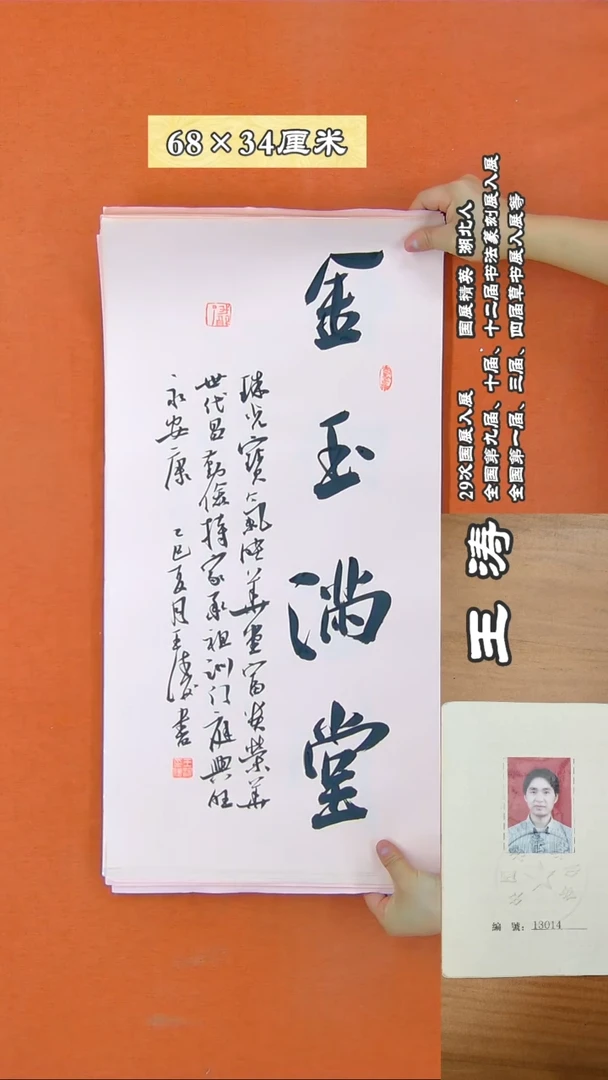 68×34厘米
金玉满堂
珠光寶氣映華堂富贵榮華
世代昌勤儉持家承祖訓门庭興旺
永安康 乙巳夏月王涛书
29次国展入展 国展精英 湖北人
全国第九届、十届、十二届书法篆刻展入展
全国第一届、三届、四届草书展入展等
王涛
編 號：13014